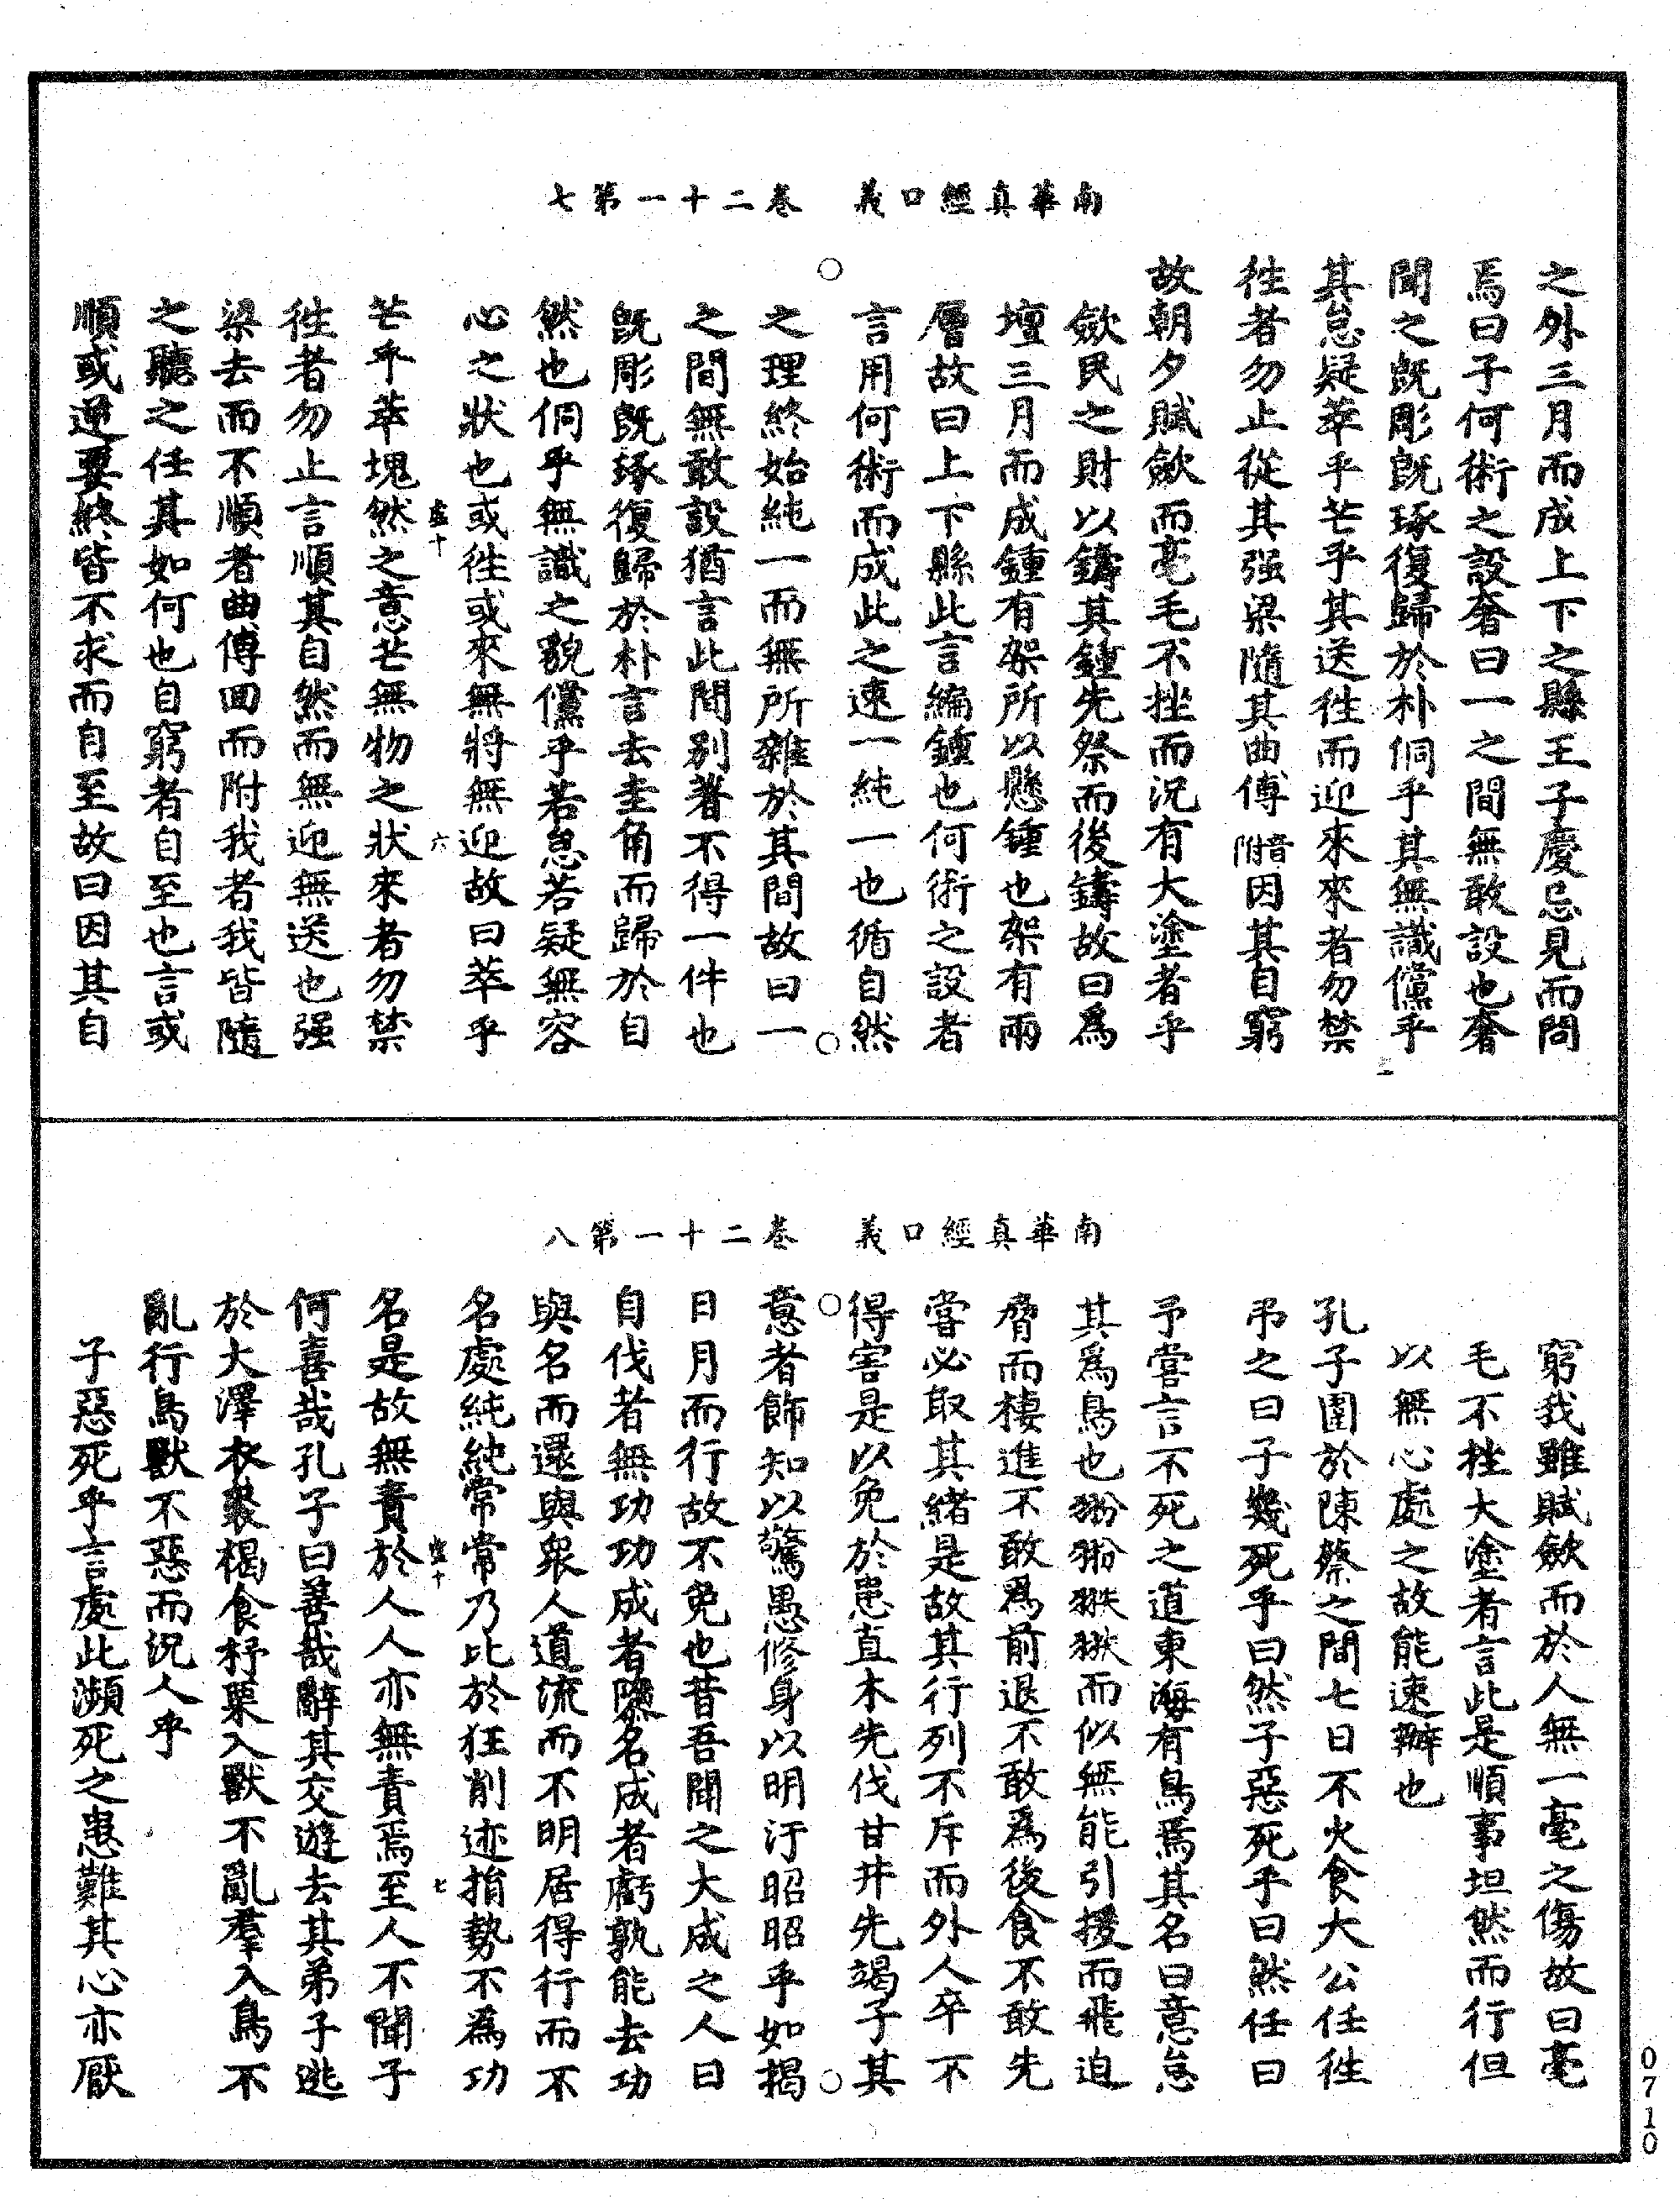 南華真經口義 卷二十一第七
之外三月而成上下之縣王子慶忌見而問
焉曰子何術之設奢曰一之間無敢設也奢
聞之既彫既琢復歸於朴侗乎其無識儻乎
其怠疑萃乎芒乎其送徃而迎來來者勿禁
徃者勿止從其强梁隨其曲傅音附因其自窮
故朝夕賦斂而毫毛不挫而況有大塗者乎
斂民之財以鑄其鍾先祭而後鑄故曰爲
壇三月而成鍾有架所以懸鍾也架有兩
層故曰上下縣此言編鍾也何術之設者
言用何術而成此之速一純一也循自然
之理終始純一而無所雜於其間故曰一
之間無敢設猶言此間別著不得一件也
既彫既琢復歸於朴言去圭角而歸於自
然也侗乎無識之貌儻乎若怠若疑無容
心之狀也或徃或來無將無迎故曰萃乎
虛十 六
芒乎萃塊然之意芒無物之狀來者勿禁
徃者勿止言順其自然而無迎無送也强
梁去而不順者曲傅回而附我者我皆隨
之聽之任其如何也自窮者自至也言或
順或逆要終皆不求而自至故曰因其自
南華真經口義 卷二十一第八
窮我雖賦斂而於人無一毫之傷故曰毫
毛不挫大塗者言此是順事坦然而行但
以無心處之故能速辦也
孔子圍於陳蔡之間七日不火食大公任徃
弔之曰子幾死乎曰然子惡死乎曰然任曰
予嘗言不死之道東海有鳥焉其名曰意怠
其爲鳥也翂翂翐翐而似無能引援而飛迫
脅而棲進不敢爲前退不敢爲後食不敢先
嘗必取其緒是故其行列不斥而外人卒不
得害是以免於患直木先伐甘井先竭子其
意者飾知以驚愚修身以明汙昭昭乎如揭
日月而行故不免也昔吾聞之大成之人曰
自伐者無功功成者隳名成者虧孰能去功
與名而還與衆人道流而不明居得行而不
名處純純常常乃比於狂削迹捐勢不為功
虛十 七
名是故無責於人人亦無責焉至人不聞子
何喜哉孔子曰善哉辭其交遊去其弟子逃
於大澤衣裘褐食杼栗入獸不亂羣入鳥不
亂行鳥獸不惡而況人乎
子惡死乎言處此瀕死之患難其心亦厭
0710